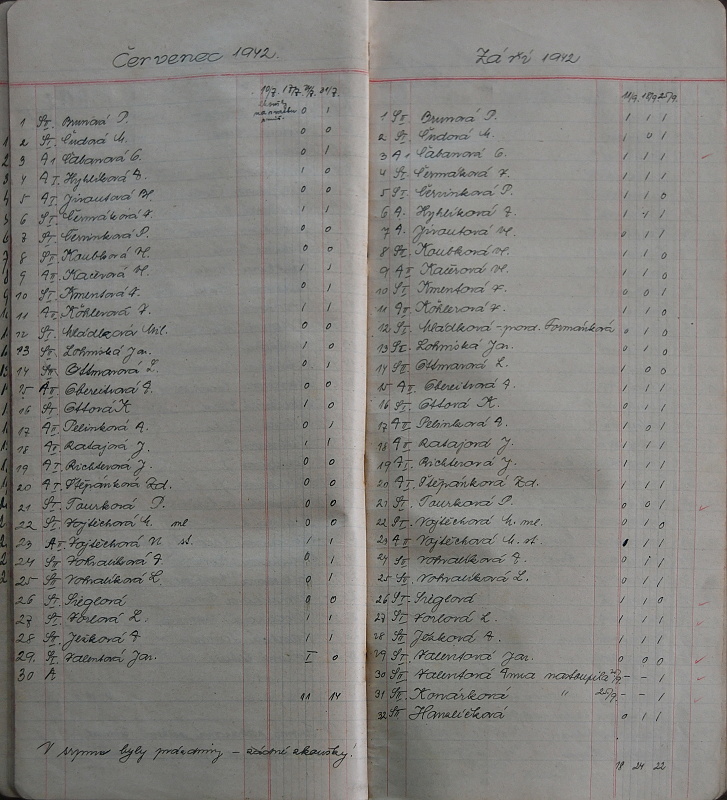 Červenec 1942.
10/7. 17/7. 24/7. 31/7.
1 SII. Brunová P. 0 1
2 SI. Čudová M. 0 0
3 AI Čabanová G. 1 1
4 AI. Hyhlíková A. 1 0
5 AI. Jiroutová M. 0 0
6 SI. Čermáková F. 1 1
7 SI. Červinková P. 0 0
8 SII. Koubková M. 0 0
9 AII. Kačerová M. 1 0
10 SI. Kmentová F. 0 0
11 AII. Köhlerová F. 1 1
12 SI. Mládková Mil. 0 0
13 SII. Lohniská Jar. 1 0
14 SII. Ottmarová L. 0 1
15 AII. Obereitrová A. 0 0
16 SI. Ottová K 1 0
17 AII. Pelinková A. 0 0
18 AII. Ratajová J. 1 1
19 AI. Richterová J. 0 0
20 AI. Štěpánková Zd. 0 0
21 SI. Tourková P. 0 0
22 SI. Vojtěchová M. ml 0 0
23 AII. Vojtěchová M. st. 1 1
24 SII. Vohralíková A. 0 1
25 SII. Vohralíková L. 0 1
26 SI. Sieglová 0 0
27 SI. Vorlová L. 1 1
28 SII. Ježková A 1 1
29. SI. Valentová Jar. I 0
30 A
11 14
V srpnu byly prázdniny – žádné zkoušky!
Září 1942
11/9. 18/9 25/9.
1 SII. Brunová P. 1 1 1
2 SI. Čudová M. 1 0 1
3 AI Čabanová G. 1 1 1
4 SI. Čermáková F. 1 1 1
5 SI. Červinková P. 1 1 0
6 A. Hyhlíková A. 1 1 1
7 A. Jiroutová M. 0 1 1
8 SI. Koubková M. 1 1 0
9 AII Kačerová M. 1 1 0
10 SI. Kmentová F. 0 0 1
11 AII. Köhlerová F. 1 1 0
12 SI. Mládková – provd. Formánková 0 1 0
13 SII. Lohniská Jar. 0 1 0
14 SII Ottmarová L. 1 0 0
15 AII. Obereitrová A. 1 1 1
16 SI. Ottová K. 0 1 1
17 AII. Pelinková A. 1 0 1
18 AII. Ratajová J. 1 1 1
19 AI. Richterová J. 1 1 1
20 AI. Štěpánková Zd. 1 1 1
21 SI. Tourková P. 0 0 1
22 SI. Vojtěchová M. ml. 0 1 0
23 AII Vojtěchová M. st. 1 1
24 SII. Vohralíková A. 0 1 1
25 SII. Vohralíková L. 0 1 1
26 SI. Sieglová 1 1 0
27 SI. Vorlová L. 1 1 1
28 SII Ježková A. 1 1 1
29 SI. Valentová Jar. 0 0 0
30 SII Valentová Anna nastoupila – – 1
31 SII. Konárková " 25/9. – – 1
32 SII Hanzlíčková 0 1 1
18 24 22